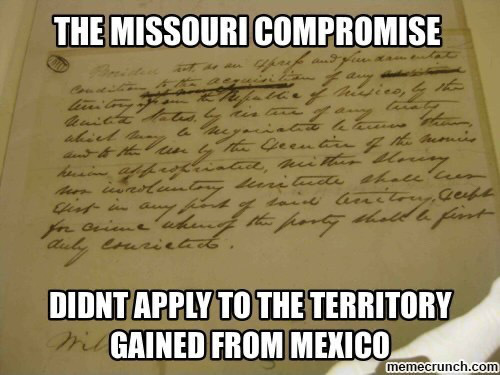 THE MISSOURI COMPROMISE
Provided, that as an express and fundamental
condition to the acquisition of any
territory from the Republic of Mexico, by the
United States, by virtue of any treaty
which may be negotiated between them,
and to the use by the Executive of the monies
herein appropriated, neither slavery
nor involuntary servitude shall ever
exist in any part of said territory, except
for crime whereof the party shall be first
duly convicted.
DIDNT APPLY TO THE TERRITORY
GAINED FROM MEXICO
Wil
memecrunch.com